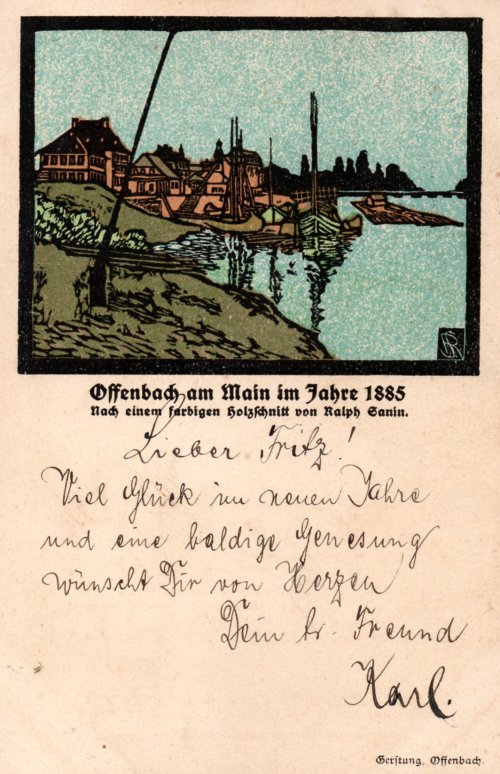 Offenbach am Main im Jahre 1885
Nach einem farbigen Holzschnitt von Ralph Sanin.
Lieber Fritz!
Viel Glück im neuen Jahre
und eine baldige Genesung
wünscht Dir von Herzen
Dein tr. Freund
Karl.
Gerstung, Offenbach.